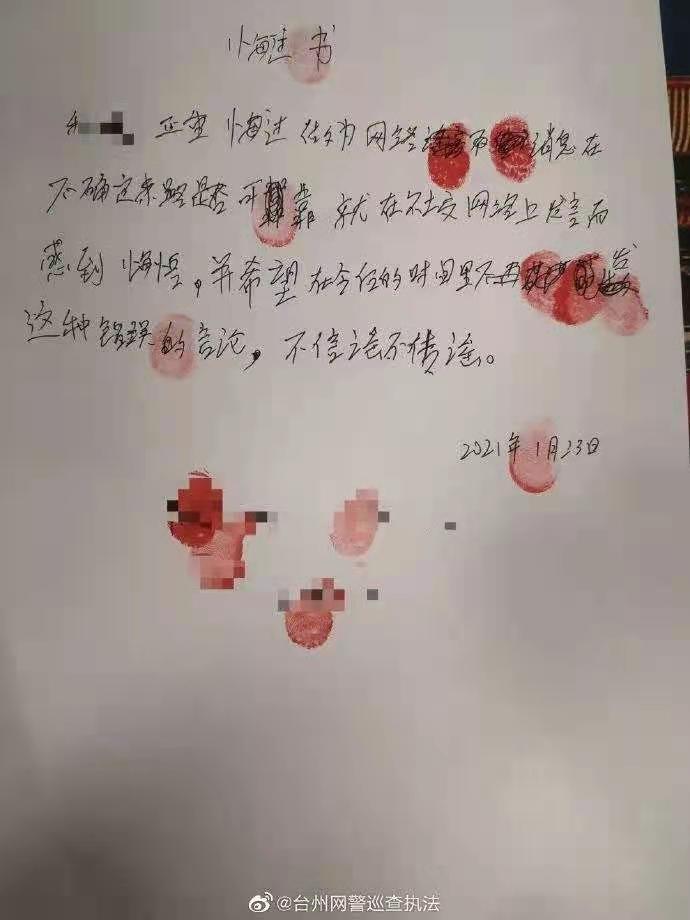 悔过书
郑重悔过 作为网络 消息在
不确定来路是否可靠就在社交网络上发言而
感到悔恨，并希望在今后的时日里不再 发
这种错误的言论，不信谣不传谣。
2021年1月23日
@台州网警巡查执法